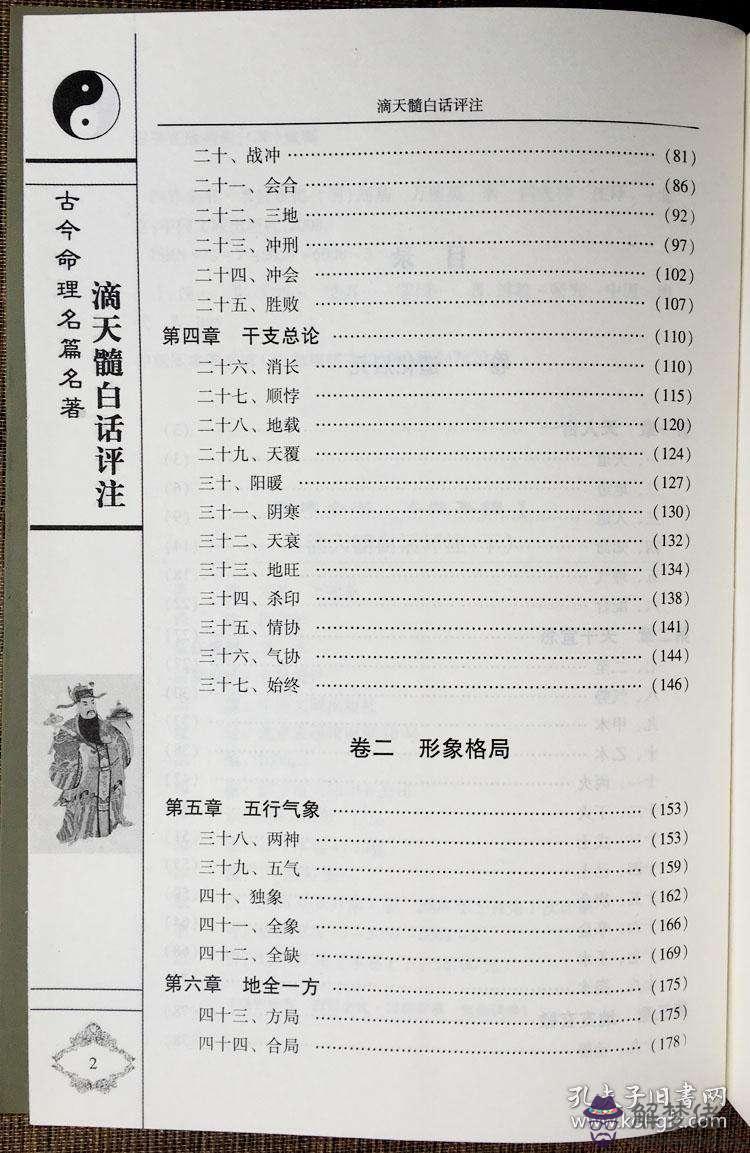 滴天髓白话评注
二十、战冲 (81)
二十一、会合 (86)
二十二、三地 (92)
二十三、冲刑 (97)
二十四、冲会 (102)
二十五、胜败 (107)
第四章 干支总论 (110)
二十六、消长 (110)
二十七、顺悖 (115)
二十八、地载 (120)
二十九、天覆 (124)
三十、阳暖 (127)
三十一、阴寒 (130)
三十二、天衰 (132)
三十三、地旺 (134)
三十四、杀印 (138)
三十五、情协 (141)
三十六、气协 (144)
三十七、始终 (146)
卷二 形象格局
第五章 五行气象 (153)
三十八、两神 (153)
三十九、五气 (159)
四十、独象 (162)
四十一、全象 (166)
四十二、全缺 (169)
第六章 地全一方 (175)
四十三、方局 (175)
四十四、合局 (178)
古今命理名篇名著
滴天髓白话评注
2
孔夫子旧书网
解梦佬